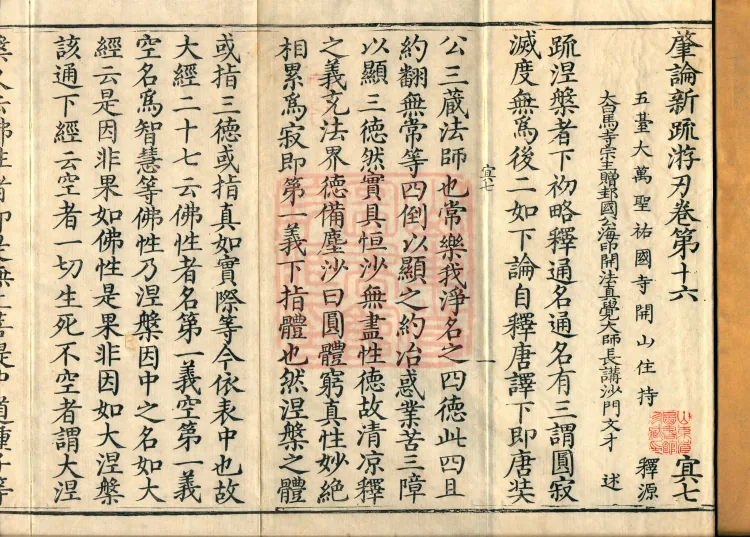 肇論新疏游刃卷第十六 寘七
五臺大萬聖祐國寺開山住持 釋源
大白馬寺宗主贈邽國公海印開法真覺大師長講沙門文才 述
疏涅槃者下初略釋通名通名有三謂圓寂
滅度無為後二如下論自釋唐譯下即唐奘
寘七
一
公三藏法師也常樂我淨名之四德此四且
約翻無常等四倒以顯之約治惑業苦三障
以顯三德然實具恒沙無盡性德故清凉釋
之義充法界德備塵沙曰圓體窮真性妙絕
相累為寂即第一義下指體也然涅槃之體
或指三德或指真如實際等今依表中也故
大經二十七云佛性者名第一義空第一義
空名為智慧等佛性乃涅槃因中之名如大
經云是因非果如佛性是果非因如大涅槃
該通下經云空者一切生死不空者謂大涅